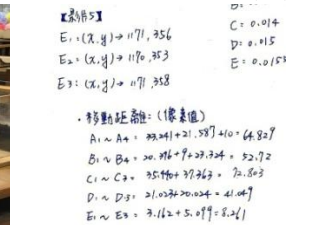 【影片5】
E₁:(x,y)→1171,356
E₂:(x,y)→1170,353
E3:(x,y)→1171,358
C=0.014
D=0.015
E=0.0153
・移動距離:(像素值)
A₁~A4=33.241+21.587+10=64.829
B₁~B4=20.396+9+23.324=52.72
C₁~C3=35.440+37.363=72.803
D₁~D3=21.023+20.024=41.049
E₁~E3=3.162+5.099=8.261